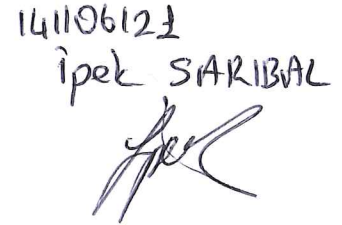 141106121
ipek SARIBAL